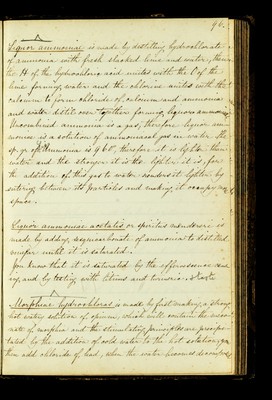 90.
Liquor ammoniae is made by distilling hydrochlorate
of ammonia with fresh slacked lime and water, then
the H of the hydrochloric acid unites with the O of the
lime forming water and the chlorine unites with the
calcium to form chloride of calcium and ammonia
and water distil over together forming liquor ammoniae
ammonia is a gas, therefore liquor am
moniae is a solution of ammoniacal gas in water the
sp. gr. of Ammonia is 960, therefore it is lighter than
water and the stronger it is the lighter it is, for
the addition of this gas to water renders it lighter by
entering between its particles and making it occupy more
space.
Liquor ammoniae acetatis or spiritus mindereri is
made by adding sesquicarbonate of ammonia to distilled
vinegar until it is saturated.
You know that it is saturated by the effervescence ceas
ing, and by testing with litmus and turmeric.
Morphiae hydrochloras is made by first making a strong
hot watery solution of opium, which will contain the mecon
nate of morphia and the stimulating principles are precipi
tated by the addition of cold water to the hot solution,
then add chloride of lead, when the water becomes